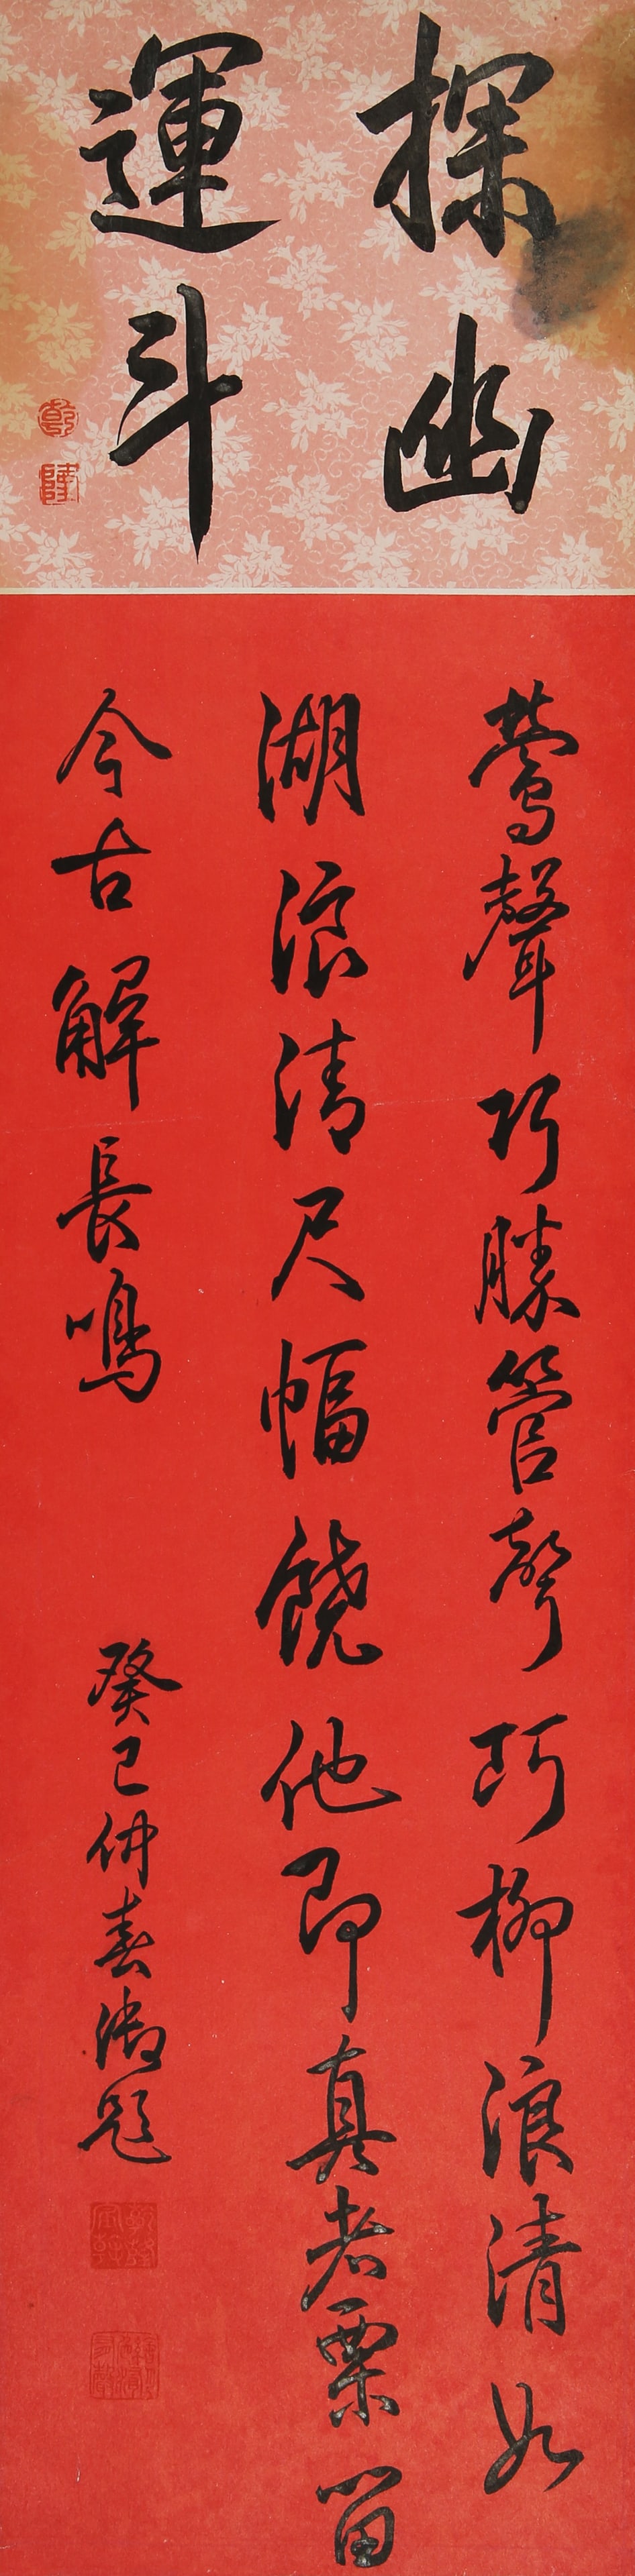 探幽
運斗
乾
隆
鶯聲巧勝管聲巧柳浪清如
湖浪清尺幅饒他即真者栗留
今古解長鳴
癸巳仲春御題